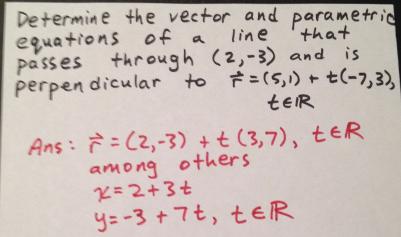 Determine the vector and parametric
equations of a line that
passes through (2,-3) and is
perpendicular to r⃗=(5,1)+t(-7,3),
t∈ℝ
Ans: r⃗=(2,-3)+t(3,7), t∈ℝ
among others
x=2+3t
y=-3+7t, t∈ℝ